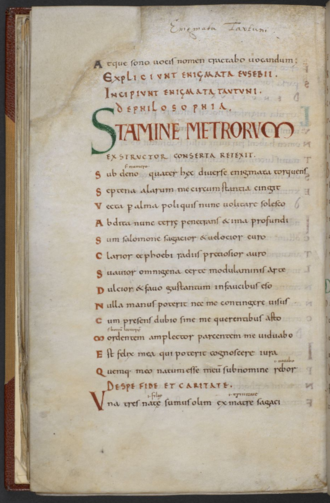 Enigmata Tautuni
Atque sono vocis nomen tractabo vocandum:
EXPLICIUNT ENIGMATA EUSEBII.
INCIPIUNT ENIGMATA TAUTUNI
DE PHILOSOPHIA.
STAMINE METRORUM
EXSTRUCTOR CONSERTA RETEXIT.
Sub deno quater hęc diverse enigmata torquens
Septena alarum me circumstantia cingit
Vecta per alma poli quis nunc volitare solesco
Abdita nunc terrę penetrans & ima profundi
Sum salomone sagacior & velocior euro
Clarior et phoebi radiis pretiosior auro
Suavior omnigena certe modulaminis arte
Dulcior & favo gustantum in faucibus eso
Nulla manus poterit nec me contingere visus
Cum presens dubio sine me querentibus asto
Mordentem amplector parcentem me viduabo
Est felix mea qui poterit cognoscere iura
Quemque meo natum esse meum sub nomine rebor
DE SPE FIDE ET CARITATE.
Una tres natę sumus olim ex matre sagaci